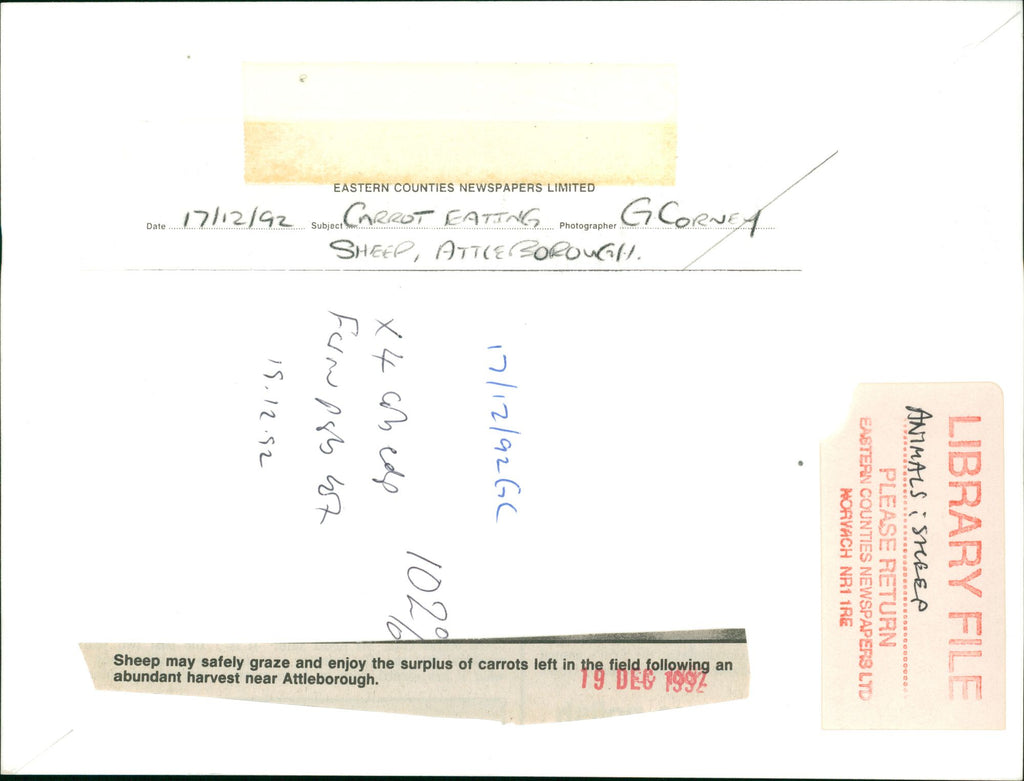 EASTERN COUNTIES NEWSPAPERS LIMITED
Date 17/12/92 Subject CARROT EATING Photographer G CORNEY
SHEEP, ATTLEBOROUGH.
17/12/92 GC
X 4
Farm
19.12.92
102%
LIBRARY FILE
ANIMALS : SHEEP
PLEASE RETURN
EASTERN COUNTIES NEWSPAPERS LTD
NORWICH NR1 1RE
Sheep may safely graze and enjoy the surplus of carrots left in the field following an
abundant harvest near Attleborough.
19 DEC 1992